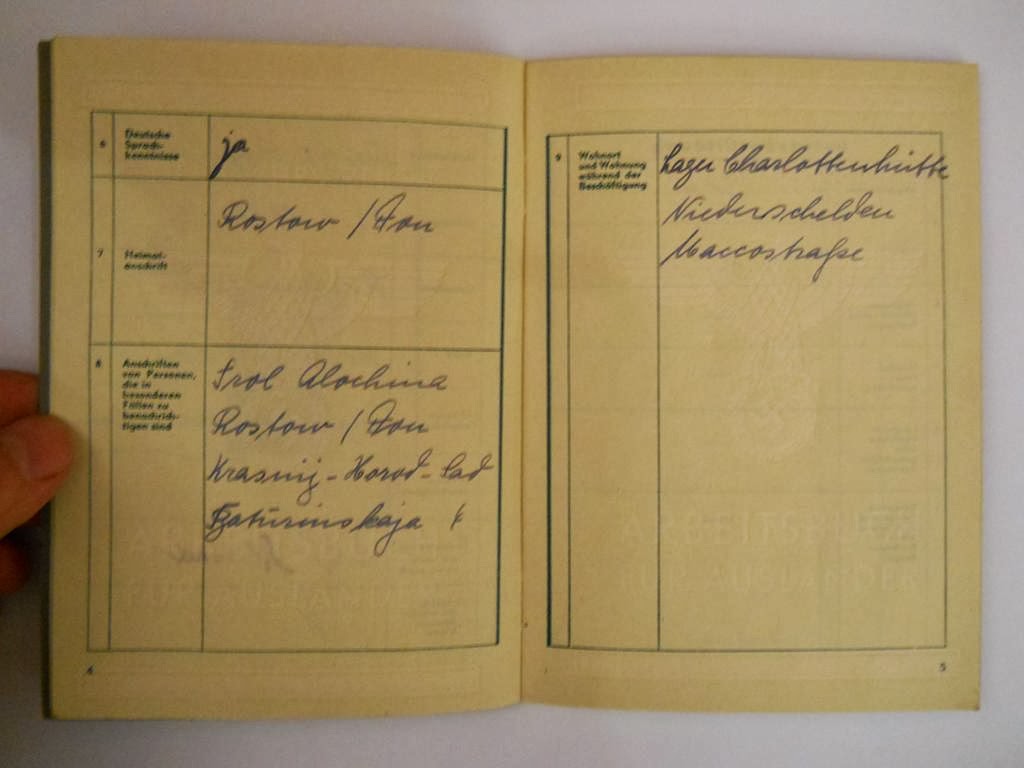 6 Deutsche
Sprach-
kenntnisse
ja
7 Heimat-
anschrift
Rostow / Don
8 Anschriften
von Personen,
die in
besonderen
Fällen zu
benachrich-
tigen sind
Frol Alochina
Rostow / Don
Krasnij - Horod - Sad
4
9 Wohnort
und Wohnung
während der
Beschäftigung
Lager Charlottenhütte
Niederschelden
Maccostraße
ARBEITSBUCH
FÜR AUSLÄNDER
5